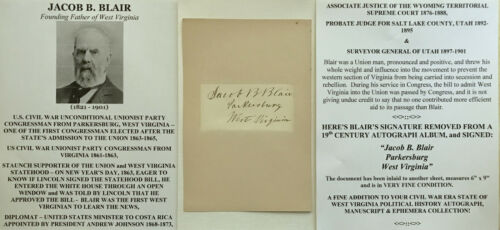 JACOB B. BLAIR
Founding Father of West Virginia
(1821 - 1901)
U.S. CIVIL WAR UNCONDITIONAL UNIONIST PARTY
CONGRESSMAN FROM PARKERSBURG, WEST VIRGINIA –
ONE OF THE FIRST CONGRESSMEN ELECTED AFTER THE
STATE'S ADMISSION TO THE UNION 1863-1865,
US CIVIL WAR UNIONIST PARTY CONGRESSMAN FROM
VIRGINIA 1861-1863,
STAUNCH SUPPORTER OF THE UNION and WEST VIRGINIA
STATEHOOD – ON NEW YEAR'S DAY, 1863, EAGER TO
KNOW IF LINCOLN SIGNED THE STATEHOOD BILL, HE
ENTERED THE WHITE HOUSE THROUGH AN OPEN
WINDOW and WAS TOLD BY LINCOLN THAT HE
APPROVED THE BILL – BLAIR WAS THE FIRST WEST
VIRGINIAN TO LEARN THE NEWS,
DIPLOMAT – UNITED STATES MINISTER TO COSTA RICA
APPOINTED BY PRESIDENT ANDREW JOHNSON 1868-1873,
Jacob B Blair
Parkersburg
West Virginia
ASSOCIATE JUSTICE OF THE WYOMING TERRITORIAL
SUPREME COURT 1876-1888,
PROBATE JUDGE FOR SALT LAKE COUNTY, UTAH 1892-
1895
&
SURVEYOR GENERAL OF UTAH 1897-1901
Blair was a Union man, pronounced and positive, and threw his
whole weight and influence into the movement to prevent the
western section of Virginia from being carried into secession and
rebellion. During his service in Congress, the bill to admit West
Virginia into the Union was passed by Congress, and it is not
giving undue credit to say that no one contributed more efficient
aid to its passage than Blair.
<<>>::<<>>
HERE'S BLAIR'S SIGNATURE REMOVED FROM A
19th CENTURY AUTOGRAPH ALBUM, and SIGNED:
"Jacob B. Blair
Parkersburg
West Virginia"
The document has been inlaid to another sheet, measures 6" x 9"
and is in VERY FINE CONDITION.
A FINE ADDITION TO YOUR CIVIL WAR ERA STATE OF
WEST VIRGINIA POLITICAL HISTORY AUTOGRAPH,
MANUSCRIPT & EPHEMERA COLLECTION!
<<>>::<<>>